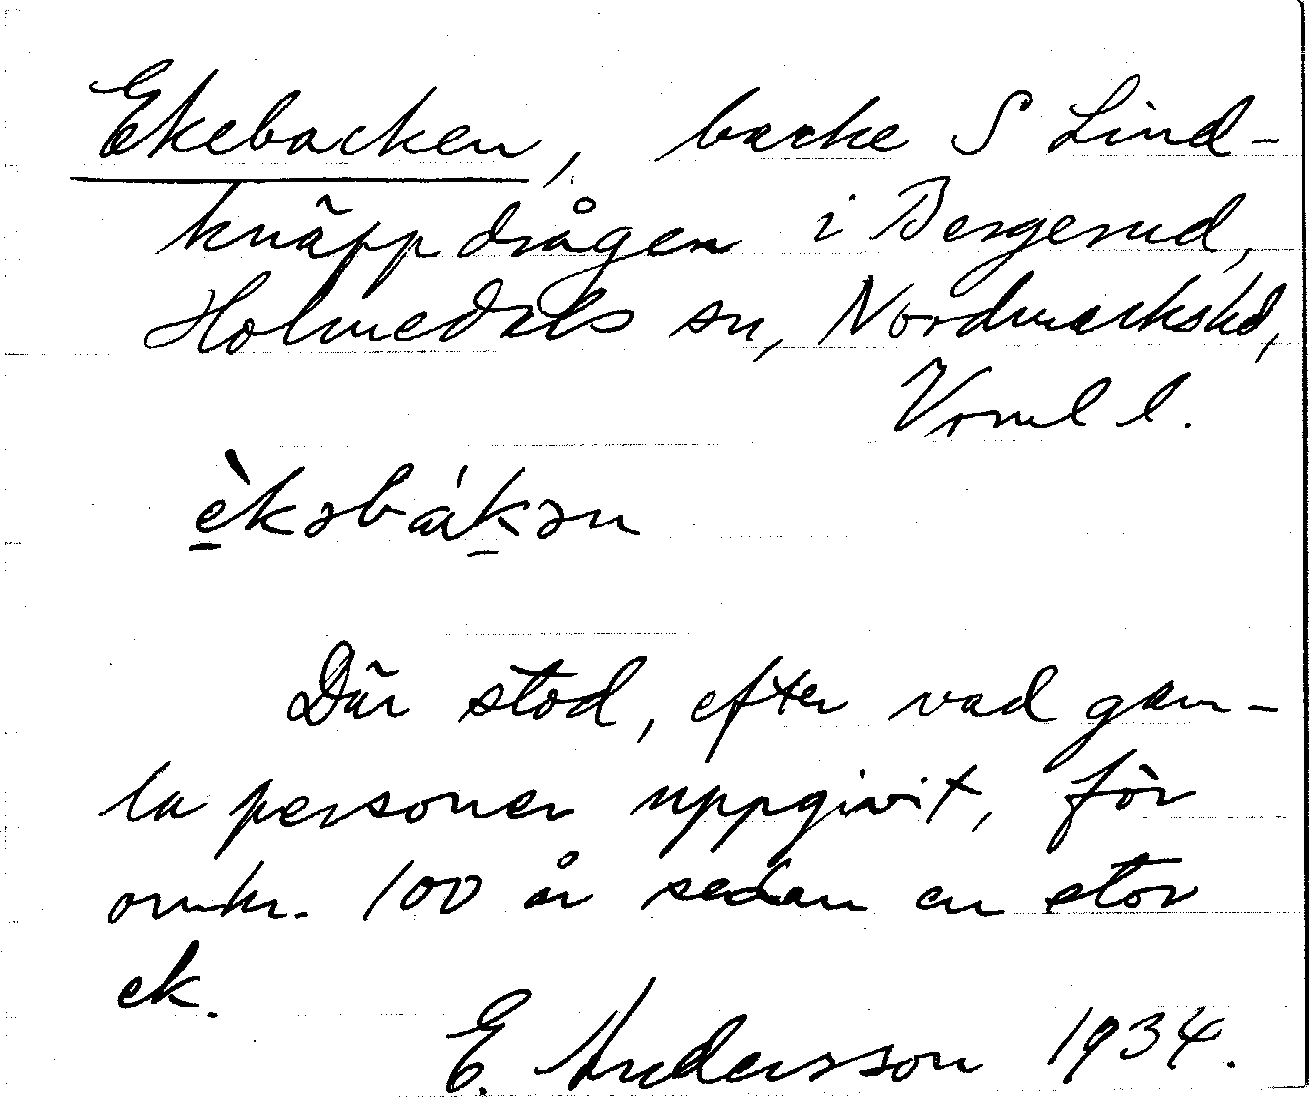 Ekebacken, backe S Lind-
knäppdrågen i Bergerud,
Holmedals sn, Nordmarks hd,
Värml l.
è̱kəbáḵən
Där stod, efter vad gam-
la personer uppgivit, för
omkr. 100 år sedan en stor
ek.
E. Andersson 1934.